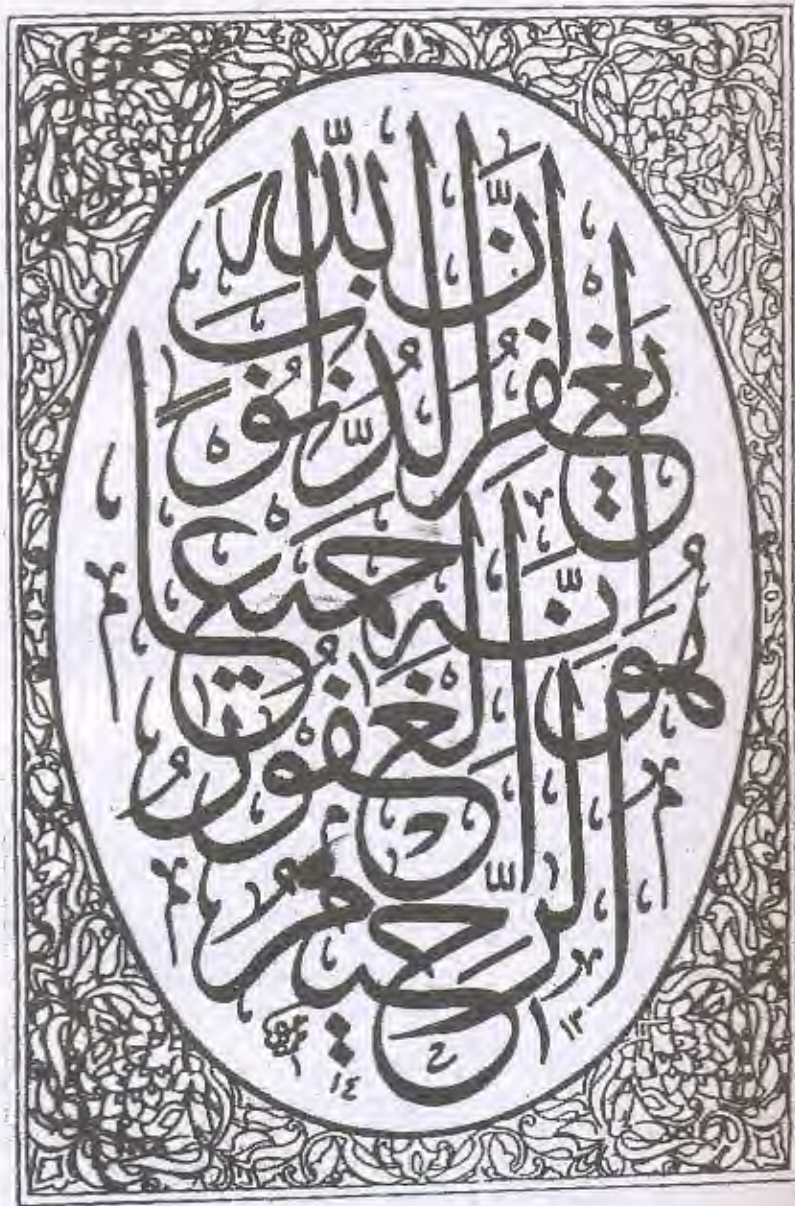 إِنَّ اللَّهَ
يَغْفِرُ الذُّنُوبَ
جَمِيعًا إِنَّهُ
هُوَ الْغَفُورُ
الرَّحِيمُ
١٤ ١٣